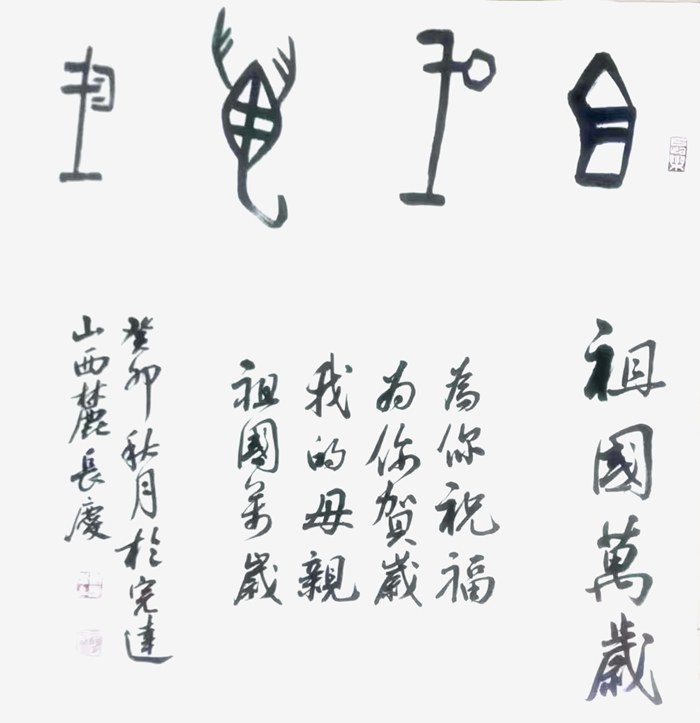 祖國萬歲
祖國萬歲
為你祝福
为你賀歲
我的母親
祖國萬歲
癸卯秋月於完達
山西麓長慶